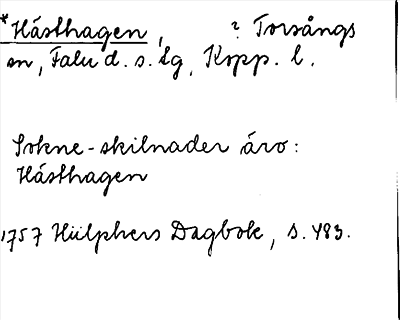 *Hästhagen, ? Torsångs
sn, Falu d. s. lg, Kopp. l.
Sokne-skilnader äro:
Hästhagen
1757 Hülphers Dagbok, s. 483.